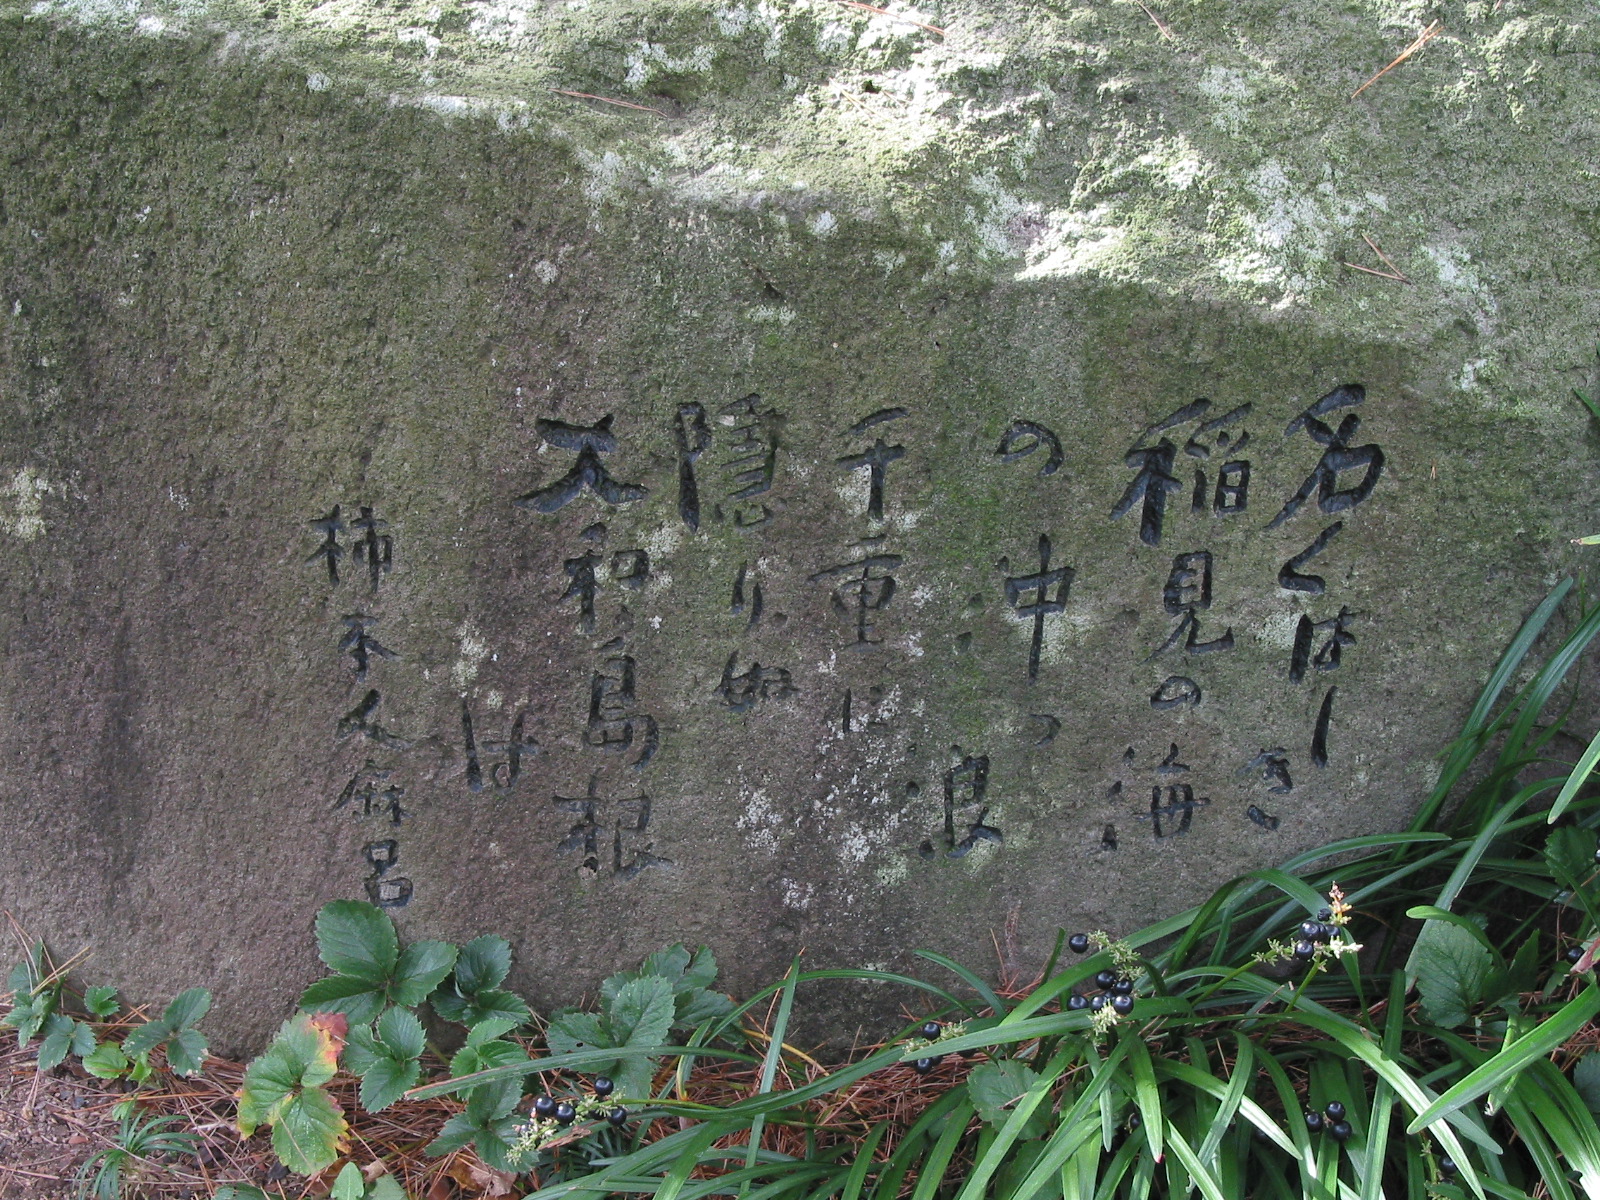 名くはしき
稲見の海
の沖つ浪
千重に
隠りぬ
大和島根
は
柿本人麻呂